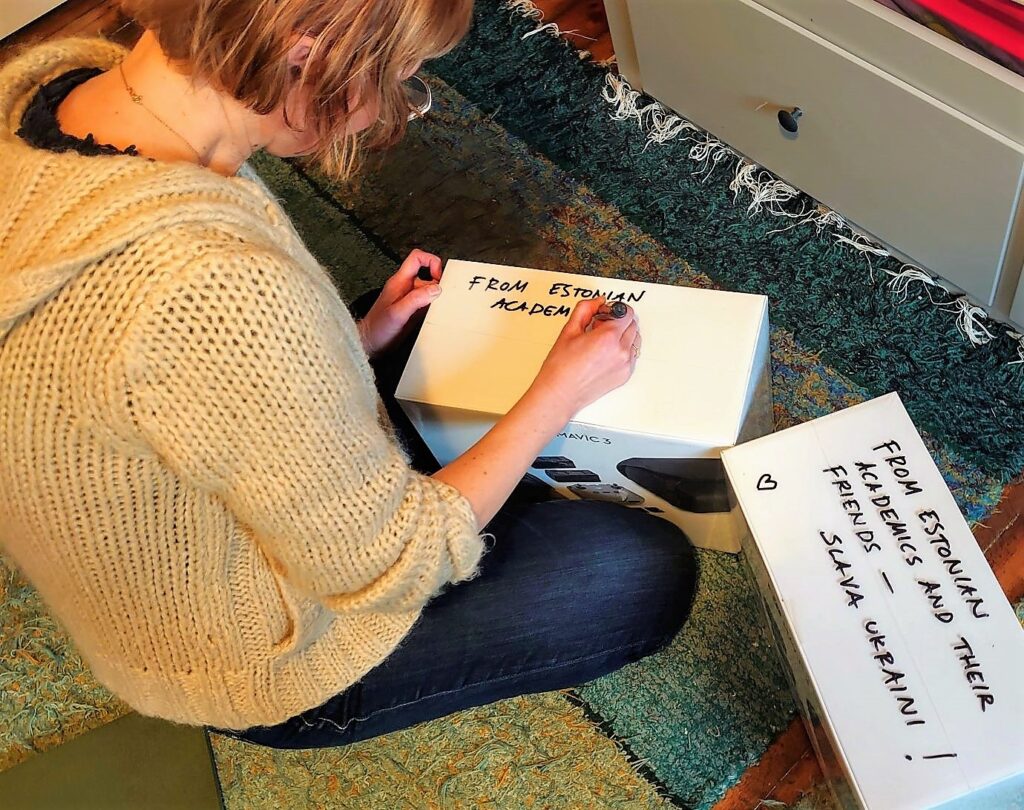 FROM ESTONIAN
ACADEM
MAVIC 3
FROM ESTONIAN
ACADEMICS AND THEIR
FRIENDS –
SLAVA UKRAINI!